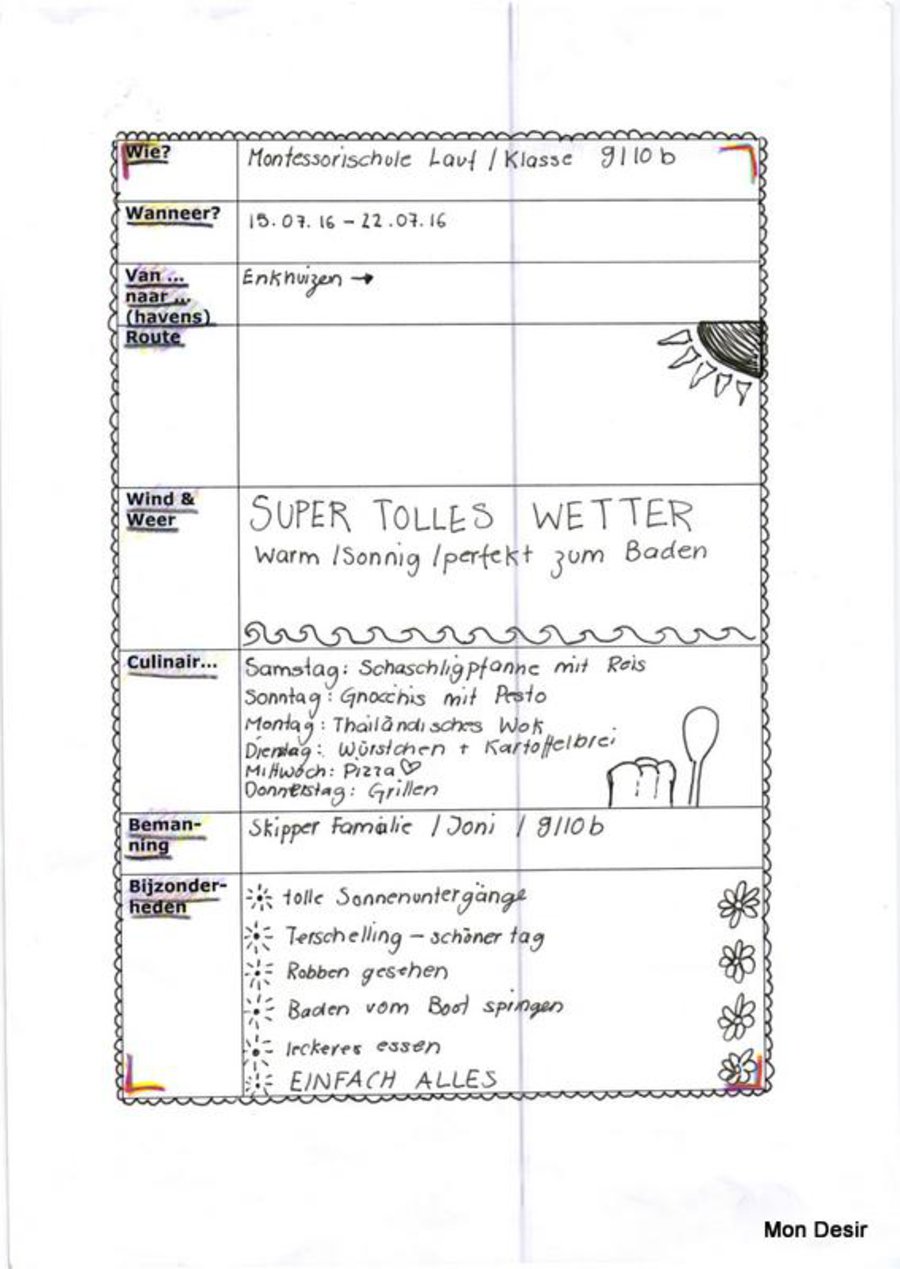 Wie? Montessorischule Lauf / Klasse 9/10 b
Wanneer? 15.07.16 - 22.07.16
Van ... Enkhuizen →
naar ...
(havens)
Route
Wind & SUPER TOLLES WETTER
Weer Warm / Sonnig / perfekt zum Baden
Culinair... Samstag: Schaschligpfanne mit Reis
Sonntag: Gnocchis mit Pesto
Montag: Thailändisches Wok
Dienstag: Würstchen + Kartoffelbrei
Mittwoch: Pizza ♡
Donnerstag: Grillen
Beman- Skipper Familie / Joni / 9/10 b
ning
Bijzonder- tolle Sonnenuntergänge
heden
Terschelling - schöner tag
Robben gesehen
Baden vom Boot spingen
leckeres essen
EINFACH ALLES
Mon Desir